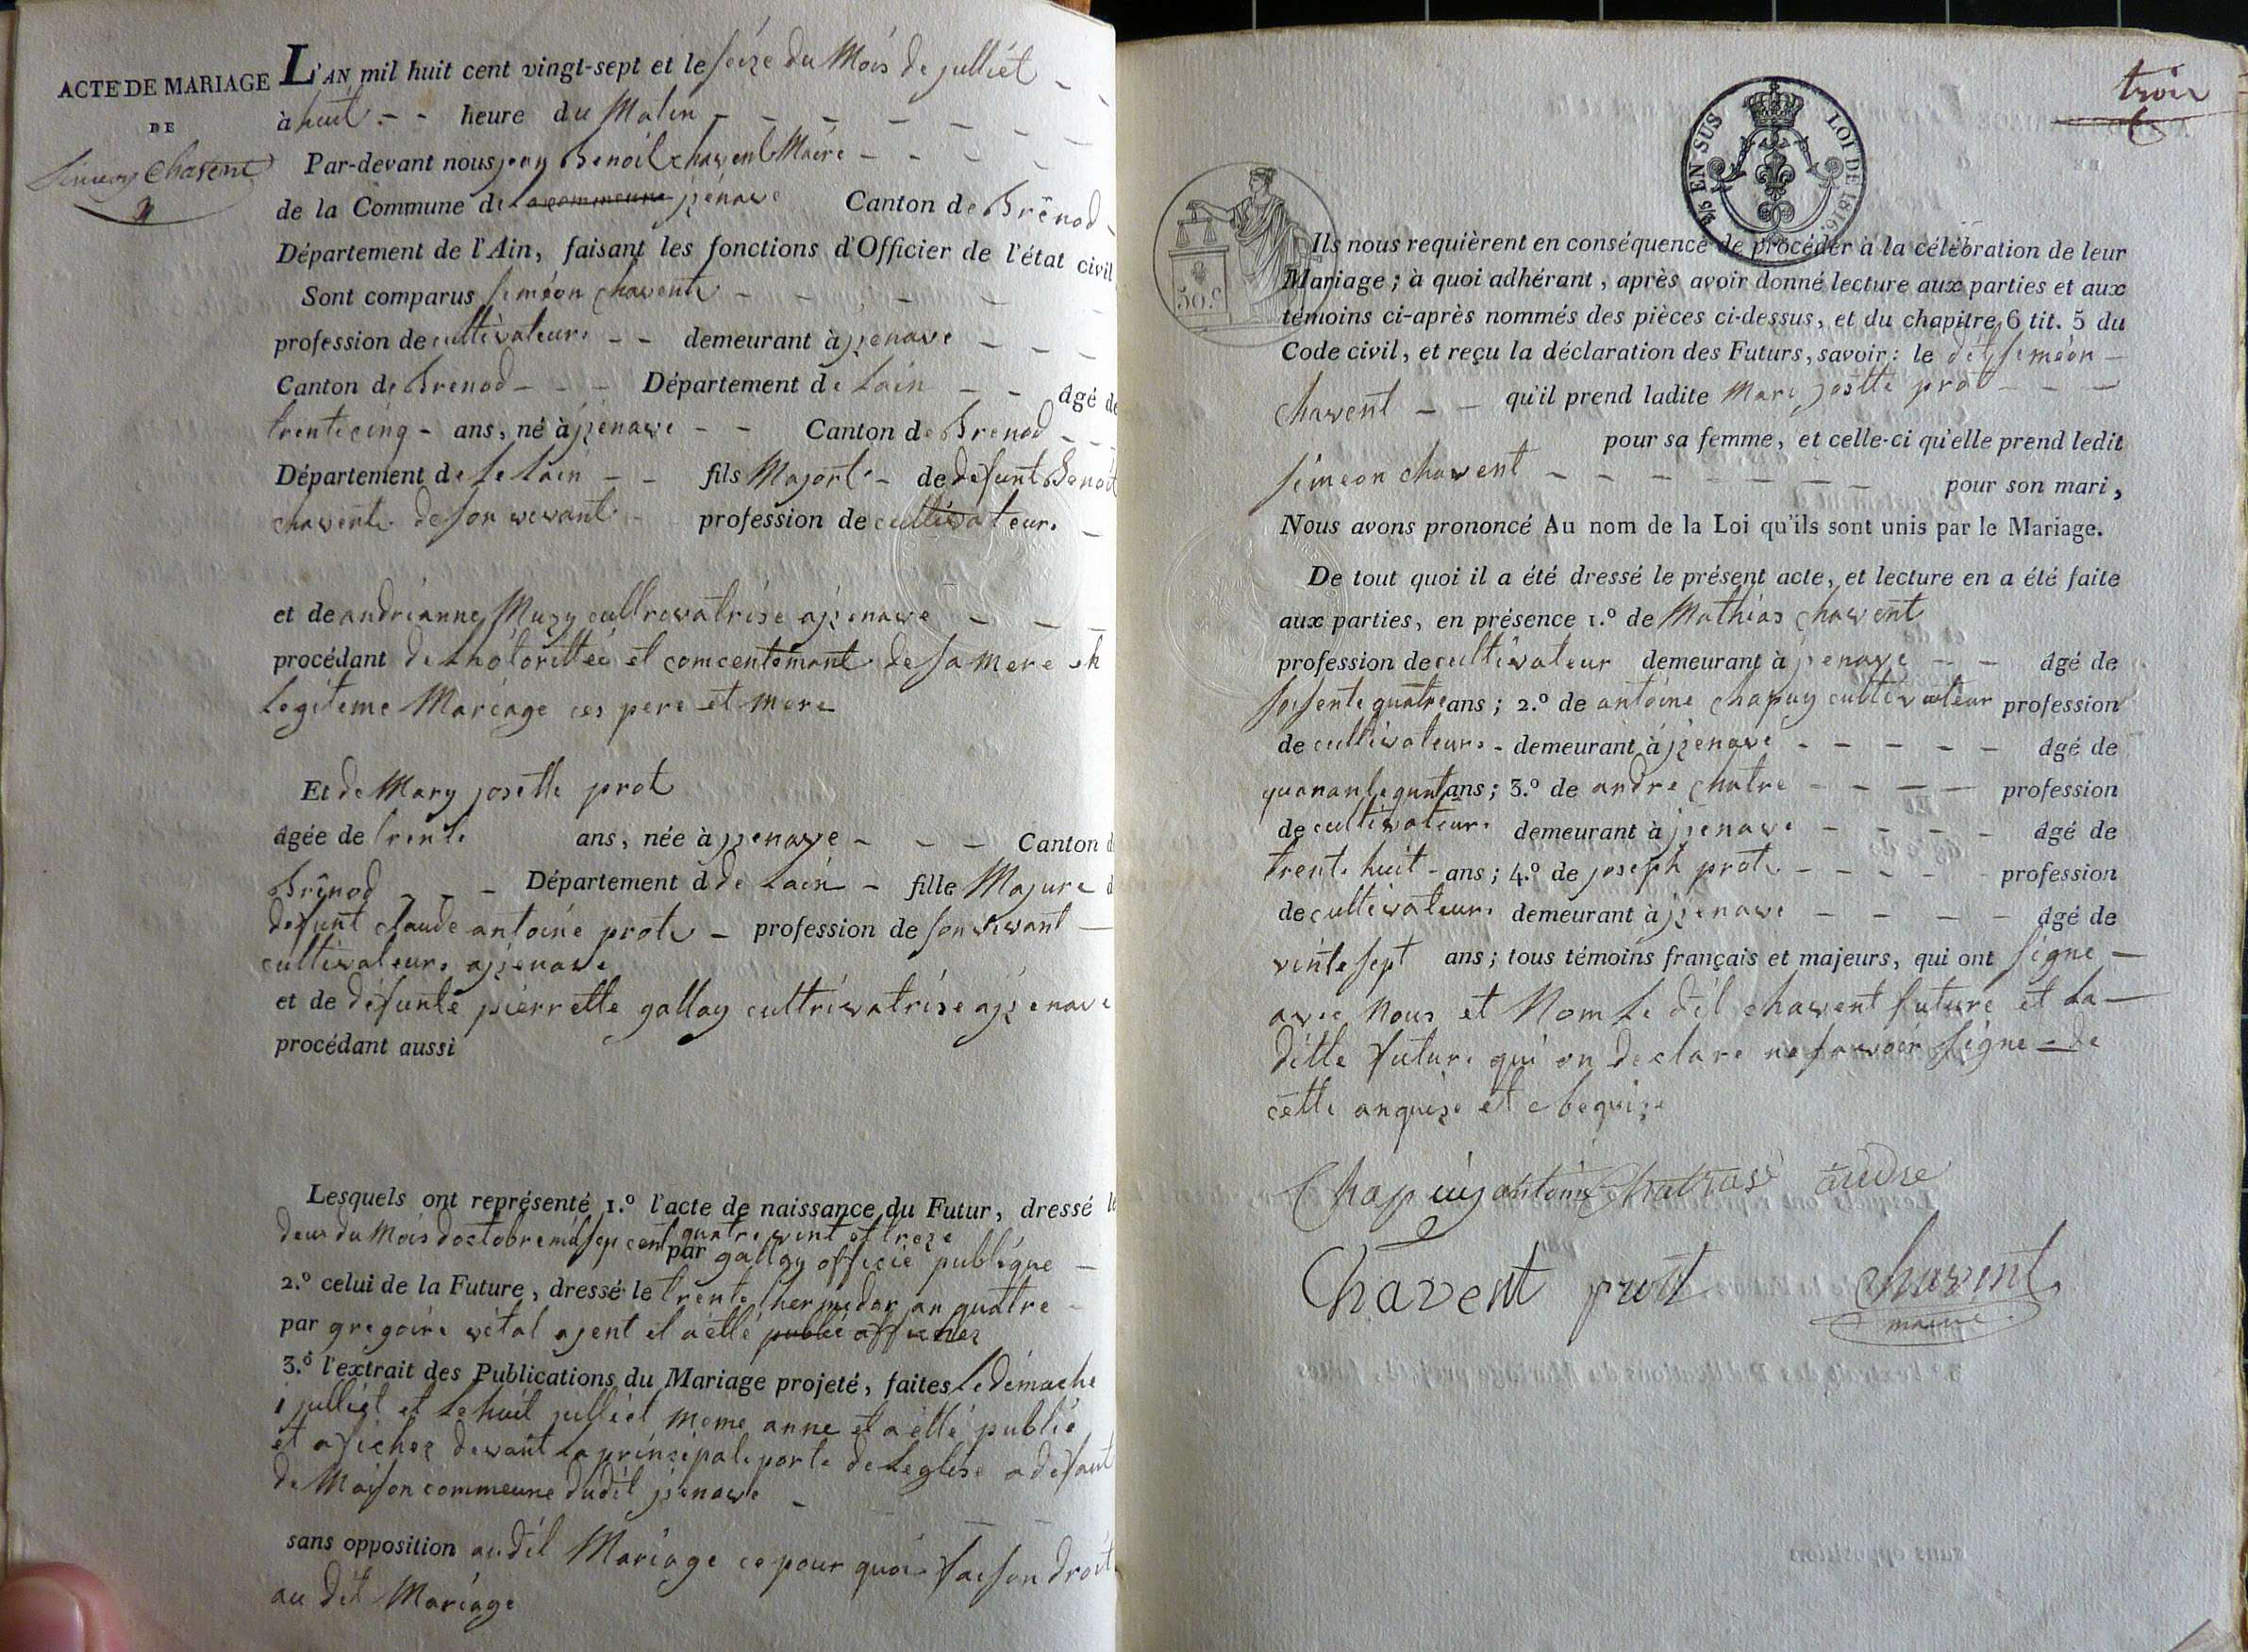 L'AN mil huit cent vingt-sept et le seize du Mois de julliét
ACTE DE MARIAGE
à huit - - heure du Matin
DE
Par-devant nous jean Benoit chavent Maire
Simeon Chavent
de la Commune de Lacommeune jzenave Canton de Brênod
Département de l'Ain, faisant les fonctions d'Officier de l'état civil
Sont comparus siméon chavent
profession de cultivateur - - demeurant à jzenave
Canton de Brenod - - - Département de Lain - - âgé de
trente cinq - ans, né à jzenave - - Canton de Brenod
Département de Le Lain - - fils Majort - de defunt Benoit
chavent de son vivant profession de cultivateur
et de andrianne Muzy cultrivatrise a jzenave
procédant de Lhotorittée et comcentemant de sa mere eh
Legiteme Mariage ces pere et mere
Et de Mary josette prot
âgée de trente ans, née à jzenave - - - Canton d
Brênod - - - Département d de Lain - fille Majure d
defunt claude antoine prot - profession de son vivant
cultivateur a jzenave
et de défunte pierrette gallay cultrivatrise a jzenave
procédant aussi
Lesquels ont représenté 1.º l'acte de naissance du Futur, dressé le
deux du Mois doctobre mil sep cent quatre vint et treze
par gallay officie publique
2.º celui de la Future, dressé le trente thermidor an quatre
par gregoire vétal ajent et a étté publié afficher
3.º l'extrait des Publications du Mariage projeté, faites Le démache
1 julliet et Le huit julliet meme anne et a étté publié
et aficher devant La principale porte de Leglise a defaut
de Maison commeune dudit jzenave
sans opposition audit Mariage ce pour quoi faison droit
au dit Mariage
trois
8/5 EN SUS LOI DE 1816
50.c
Ils nous requièrent en conséquence de procéder à la célébration de leur
Mariage ; à quoi adhérant, après avoir donné lecture aux parties et aux
témoins ci-après nommés des pièces ci-dessus, et du chapitre 6 tit. 5 du
Code civil, et reçu la déclaration des Futurs, savoir : le dit siméon
chavent - - qu'il prend ladite Mari josette prot
pour sa femme, et celle-ci qu'elle prend ledit
simeon chavent - - - - - - - pour son mari,
Nous avons prononcé Au nom de la Loi qu'ils sont unis par le Mariage.
De tout quoi il a été dressé le présent acte, et lecture en a été faite
aux parties, en présence 1.º de Mathias chavent
profession de cultivateur demeurant à jzenave - - âgé de
soisente quatre ans ; 2.º de antoine chapuy cultivateur profession
de cultivateur - demeurant à jzenave - - - - - âgé de
ans ; 3.º de andre chatre - - - - profession
de cultivateur demeurant à jzenave - - - - âgé de
trente huit - ans ; 4.º de joseph prot - - - - profession
de cultivateur demeurant à jzenave - - - - âgé de
vinte sept ans ; tous témoins français et majeurs, qui ont signe
avec nous et Nom Le dit chavent future et La
ditte future qui on declare ne savoir signe - de
cette anquise et
Chapuy antoine andre
Chavent prott chavent
maire